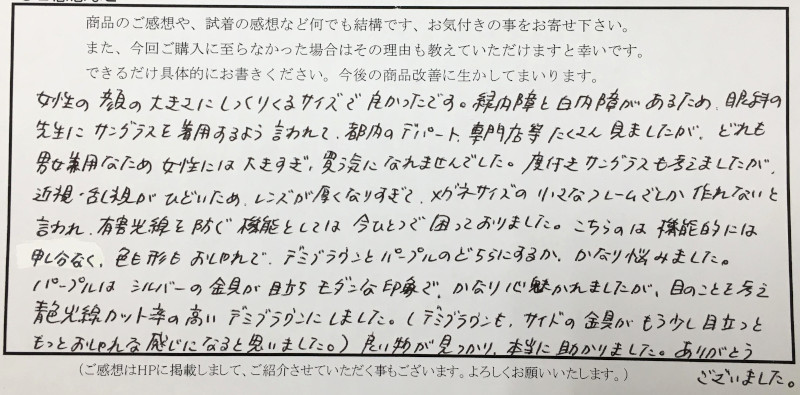 商品のご感想や、試着の感想など何でも結構です、お気付きの事をお寄せ下さい。
また、今回ご購入に至らなかった場合はその理由も教えていただけますと幸いです。
できるだけ具体的にお書きください。今後の商品改善に生かしてまいります。
女性の顔の大きさにしっくりくるサイズで良かったです。緑内障と白内障があるため、眼科の
先生にサングラスを着用するよう言われて、都内のデパート、専門店等たくさん見ましたが、どれも
男女兼用なため女性には大きすぎ、買う気になれませんでした。度付きサングラスも考えましたが、
近視・乱視がひどいため、レンズが厚くなりすぎて、メガネサイズの小さなフレームでしか作れないと
言われ、有害光線を防ぐ機能としては今ひとつで困っておりました。こちらのは機能的には
申し分なく、色も形もおしゃれで、デミブラウンとパープルのどちらにするか、かなり悩みました。
パープルはシルバーの金具が目立ちモダンな印象で、かなり心魅かれましたが、目のことを考え
青色光線カット率の高いデミブラウンにしました。(デミブラウンも、サイドの金具がもう少し目立つと
もっとおしゃれな感じになると思いました。)良い物が見つかり、本当に助かりました。ありがとう
ございました。
(ご感想はHPに掲載しまして、ご紹介させていただく事もございます。よろしくお願いいたします。)